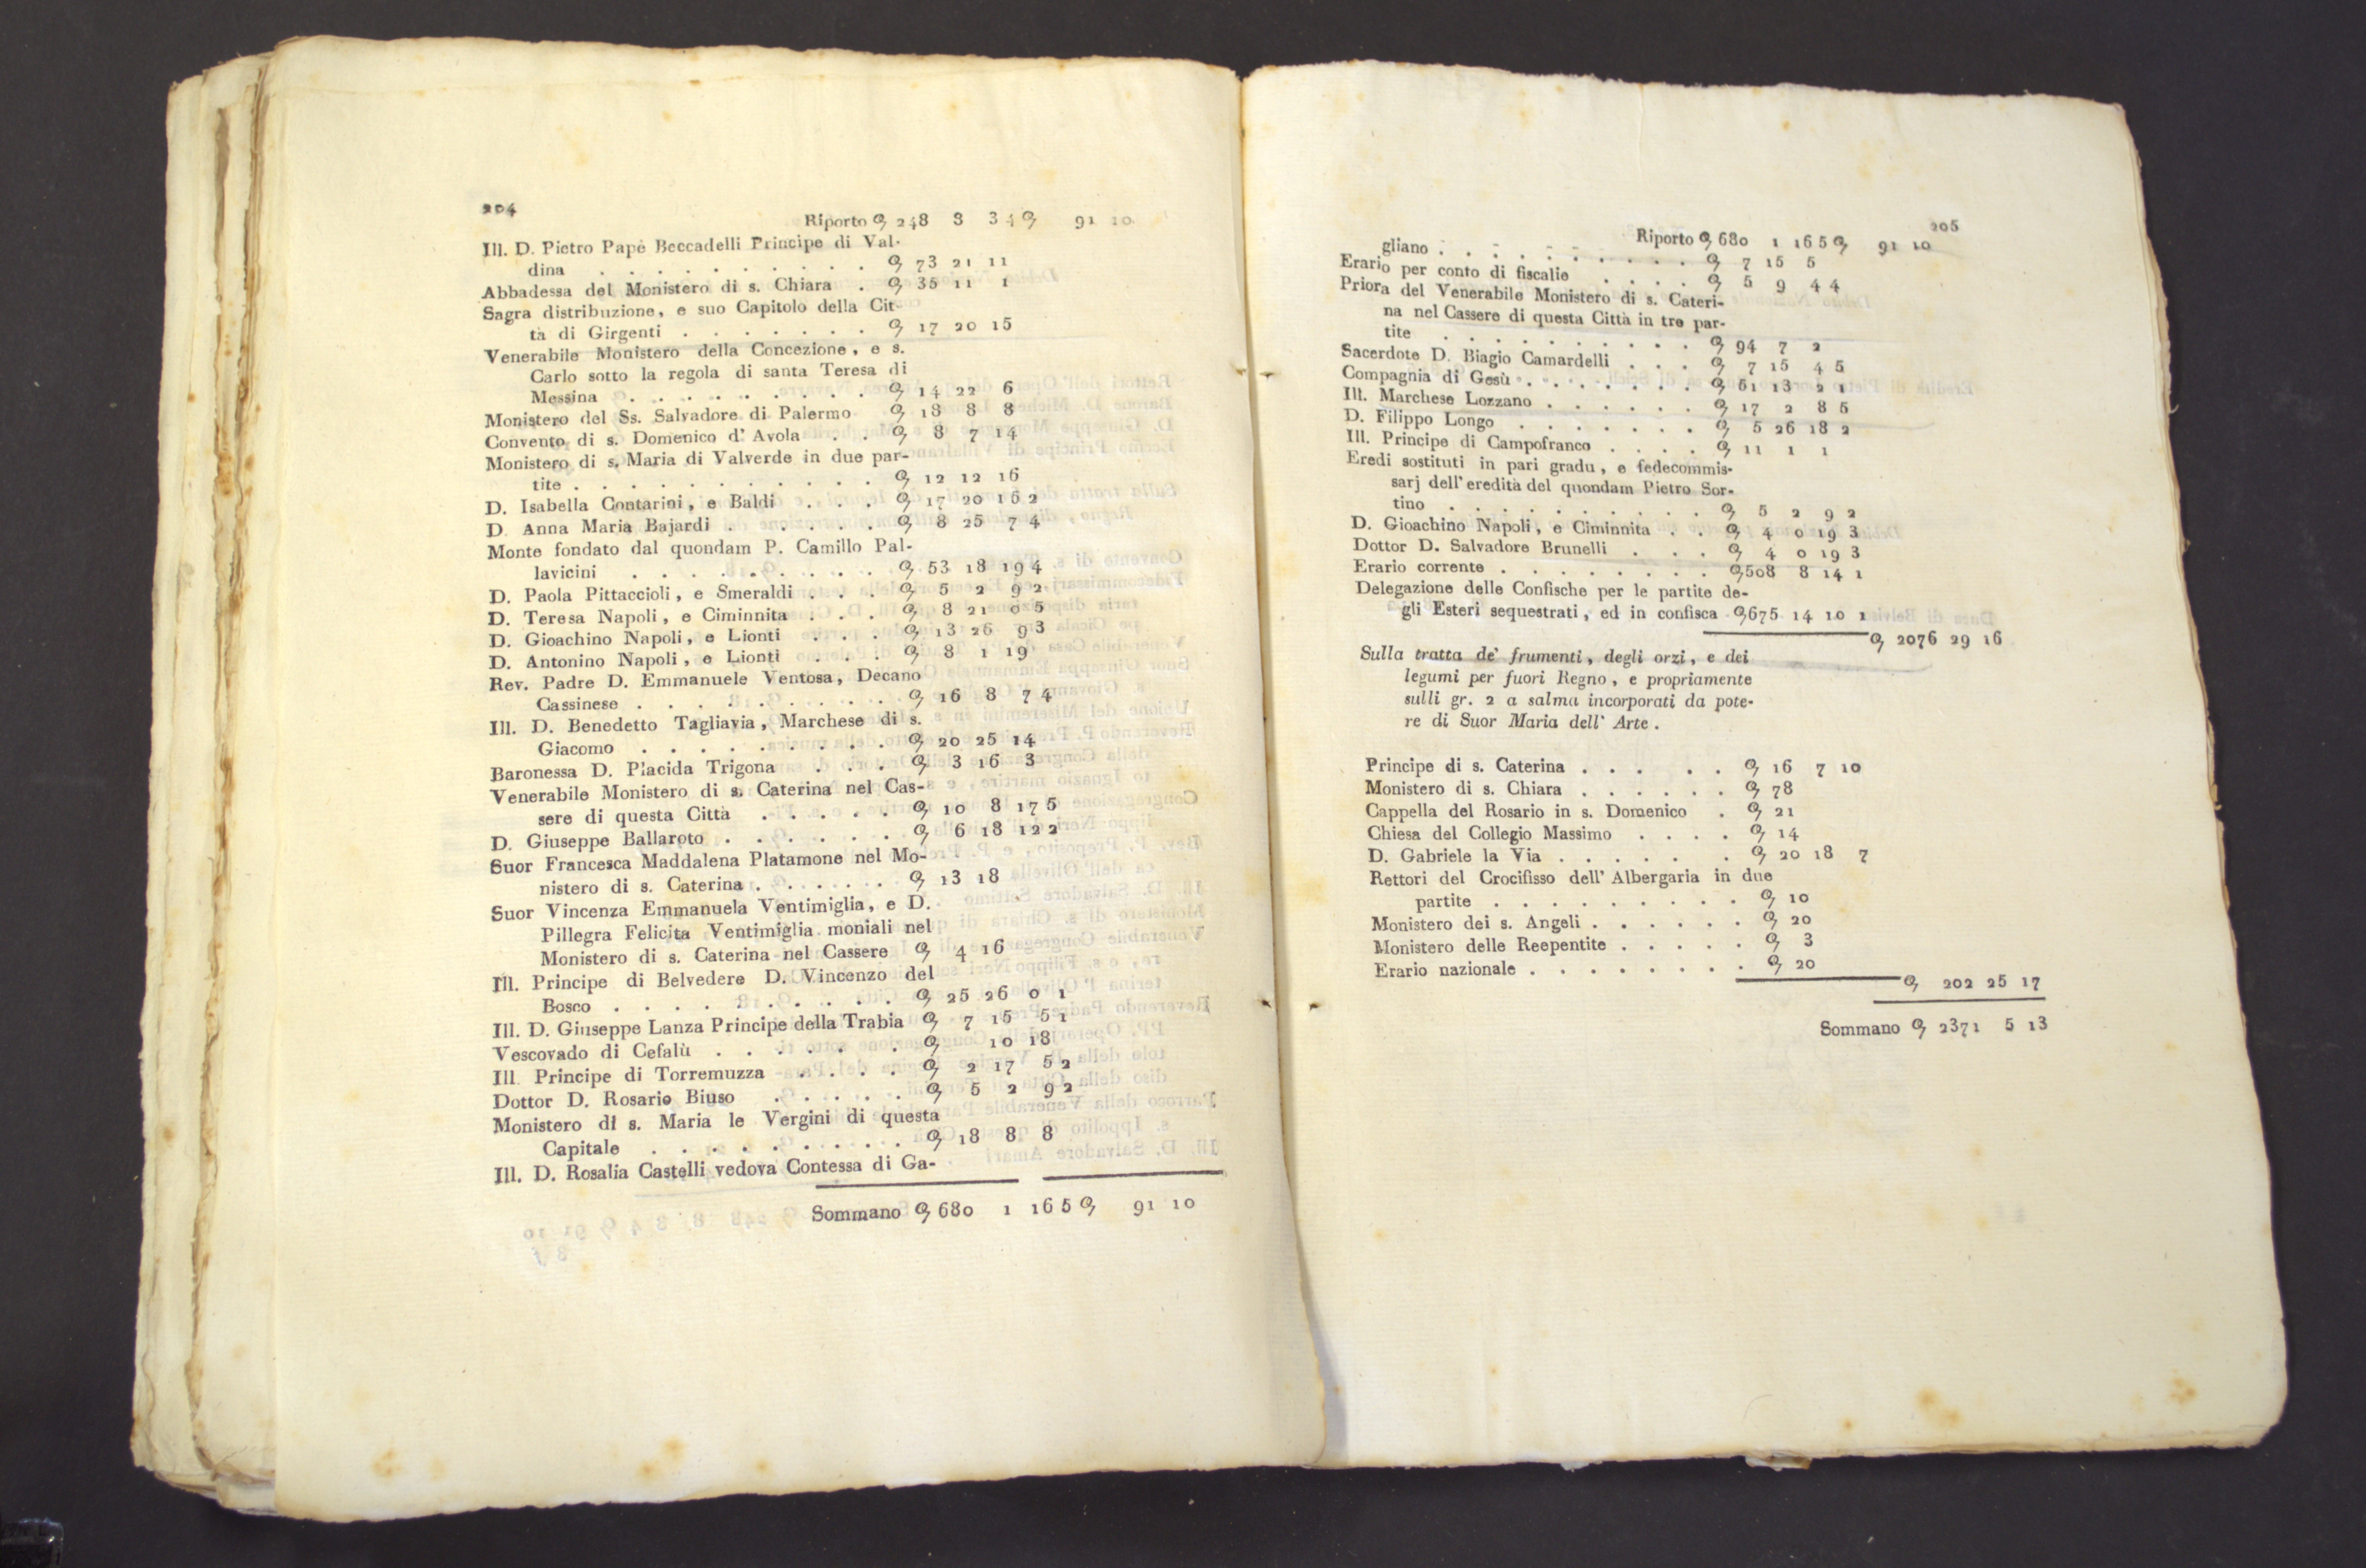 204
Riporto 248 3 3 4 91 10
Ill. D. Pietro Papè Beccadelli Principe di Val-
dina . . . . . . . . . . 73 21 11
Abbadessa del Monistero di s. Chiara . 35 11 1
Sagra distribuzione, e suo Capitolo della Cit-
tà di Girgenti . . . . . . . 17 20 15
Venerabile Monistero della Concezione, e s.
Carlo sotto la regola di santa Teresa di
Messina . . . . . . . . . 14 22 6
Monistero del Ss. Salvadore di Palermo 18 8 8
Convento di s. Domenico d' Avola . . 8 7 14
Monistero di s. Maria di Valverde in due par-
tite . . . . . . . . . . . 12 12 16
D. Isabella Contarini, e Baldi . . . 17 20 15 2
D. Anna Maria Bajardi . . . . . 8 25 7 4
Monte fondato dal quondam P. Camillo Pal-
lavicini . . . . . . . . . 53 18 19 4
D. Paola Pittaccioli, e Smeraldi . . . 5 2 9 2
D. Teresa Napoli, e Ciminnita . . . 8 21 0 5
D. Gioachino Napoli, e Lionti . . . 13 26 9 3
D. Antonino Napoli, e Lionti . . . 8 1 19
Rev. Padre D. Emmanuele Ventosa, Decano
Cassinese . . . . . . . . . 16 8 7 4
Ill. D. Benedetto Tagliavia, Marchese di s.
Giacomo . . . . . . . . . 20 25 14
Baronessa D. Placida Trigona . . . 3 16 3
Venerabile Monistero di s. Caterina nel Cas-
sere di questa Città . . . . . 10 8 17 5
D. Giuseppe Ballaroto . . . . . . 6 18 12 2
Suor Francesca Maddalena Platamone nel Mo-
nistero di s. Caterina . . . . . 13 18
Suor Vincenza Emmanuela Ventimiglia, e D.
Pillegra Felicita Ventimiglia moniali nel
Monistero di s. Caterina nel Cassere 4 16
Ill. Principe di Belvedere D. Vincenzo del
Bosco . . . . . . . . . . 25 26 0 1
Ill. D. Giuseppe Lanza Principe della Trabia 7 15 5 1
Vescovado di Cefalù . . . . . . 10 18
Ill. Principe di Torremuzza . . . . 2 17 5 2
Dottor D. Rosario Biuso . . . . . 5 2 9 2
Monistero di s. Maria le Vergini di questa
Capitale . . . . . . . . . 18 8 8
Ill. D. Rosalia Castelli vedova Contessa di Ga-
Sommano 680 1 16 5 91 10
205
Riporto 680 1 16 5 91 10
gliano . . . . . . . . . . 7 15 5
Erario per conto di fiscalie . . . . 5 9 4 4
Priora del Venerabile Monistero di s. Cateri-
na nel Cassere di questa Città in tre par-
tite . . . . . . . . . . 94 7 2
Sacerdote D. Biagio Camardelli . . . 7 15 4 5
Compagnia di Gesù . . . . . . . 51 13 2 1
Ill. Marchese Lozzano . . . . . . 17 2 8 5
D. Filippo Longo . . . . . . . 5 26 18 2
Ill. Principe di Campofranco . . . . 11 1 1
Eredi sostituti in pari gradu, e fedecommis-
sarj dell' eredità del quondam Pietro Sor-
tino . . . . . . . . . . 5 2 9 2
D. Gioachino Napoli, e Ciminnita . . 4 0 19 3
Dottor D. Salvadore Brunelli . . . 4 0 19 3
Erario corrente . . . . . . . . 508 8 14 1
Delegazione delle Confische per le partite de-
gli Esteri sequestrati, ed in confisca 675 14 10 1
2076 29 16
Sulla tratta de' frumenti, degli orzi, e dei
legumi per fuori Regno, e propriamente
sulli gr. 2 a salma incorporati da pote-
re di Suor Maria dell' Arte.
Principe di s. Caterina . . . . . 16 7 10
Monistero di s. Chiara . . . . . . 78
Cappella del Rosario in s. Domenico . 21
Chiesa del Collegio Massimo . . . . 14
D. Gabriele la Via . . . . . . 20 18 7
Rettori del Crocifisso dell' Albergaria in due
partite . . . . . . . . . 10
Monistero dei s. Angeli . . . . . . 20
Monistero delle Reepentite . . . . . 3
Erario nazionale . . . . . . . . 20
202 25 17
Sommano 2371 5 13